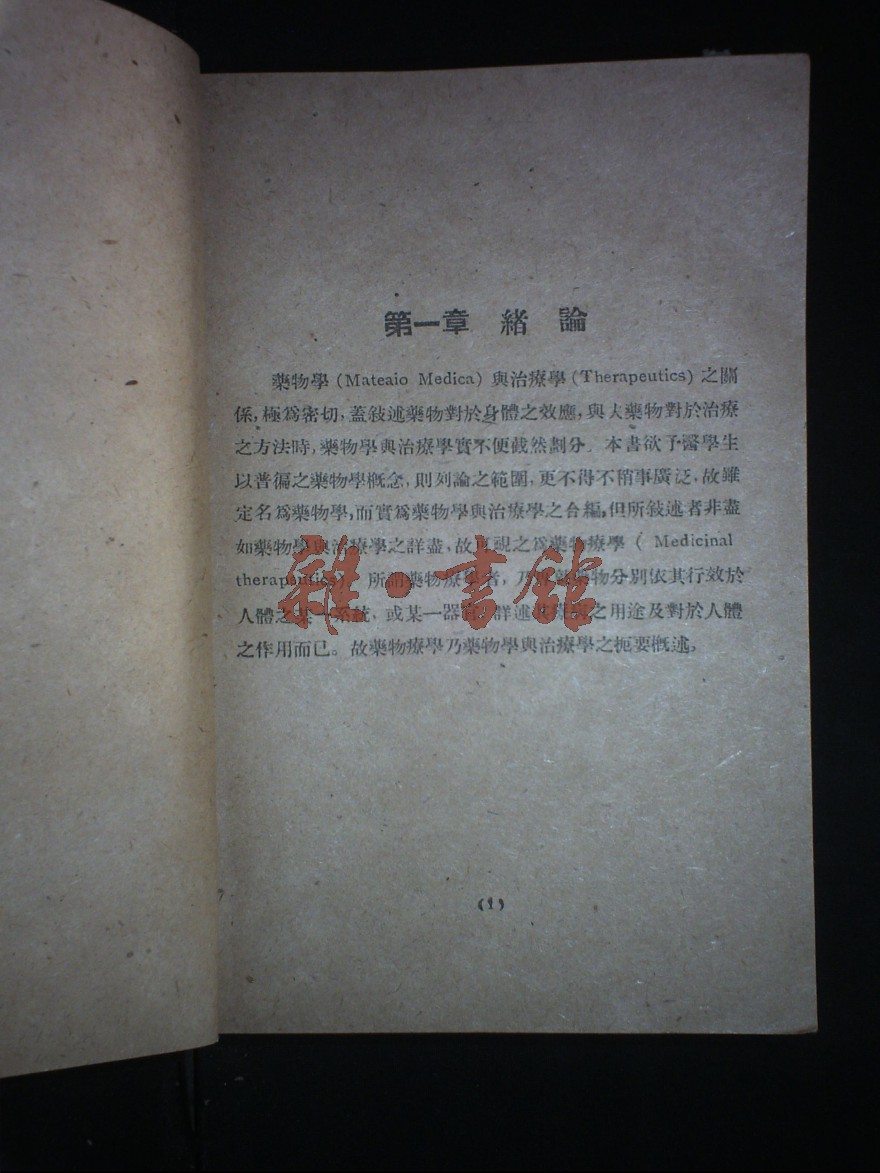 第一章 緒論
藥物學 (Mateaio Medica) 與治療學 (Therapeutics) 之關
係，極爲密切，蓋敍述藥物對於身體之效應，與大藥物對於治療
之方法時，藥物學與治療學實不便截然劃分。本書欲予醫學生
以普徧之藥物學槪念，則列論之範圍，更不得不稍事廣泛，故雖
定名爲藥物學，而實爲藥物學與治療學之合編，但所敍述者非盡
如藥物學與治療學之詳盡，故 視之爲藥物療學 ( Medicinal
therapeutics)，所謂藥物療學者，乃 藥物分別依其行效於
人體之某一系統，或某一器官，詳述 之用途及對於人體
之作用而已。故藥物療學乃藥物學與治療學之扼要槪述，
(1)
雜·書館